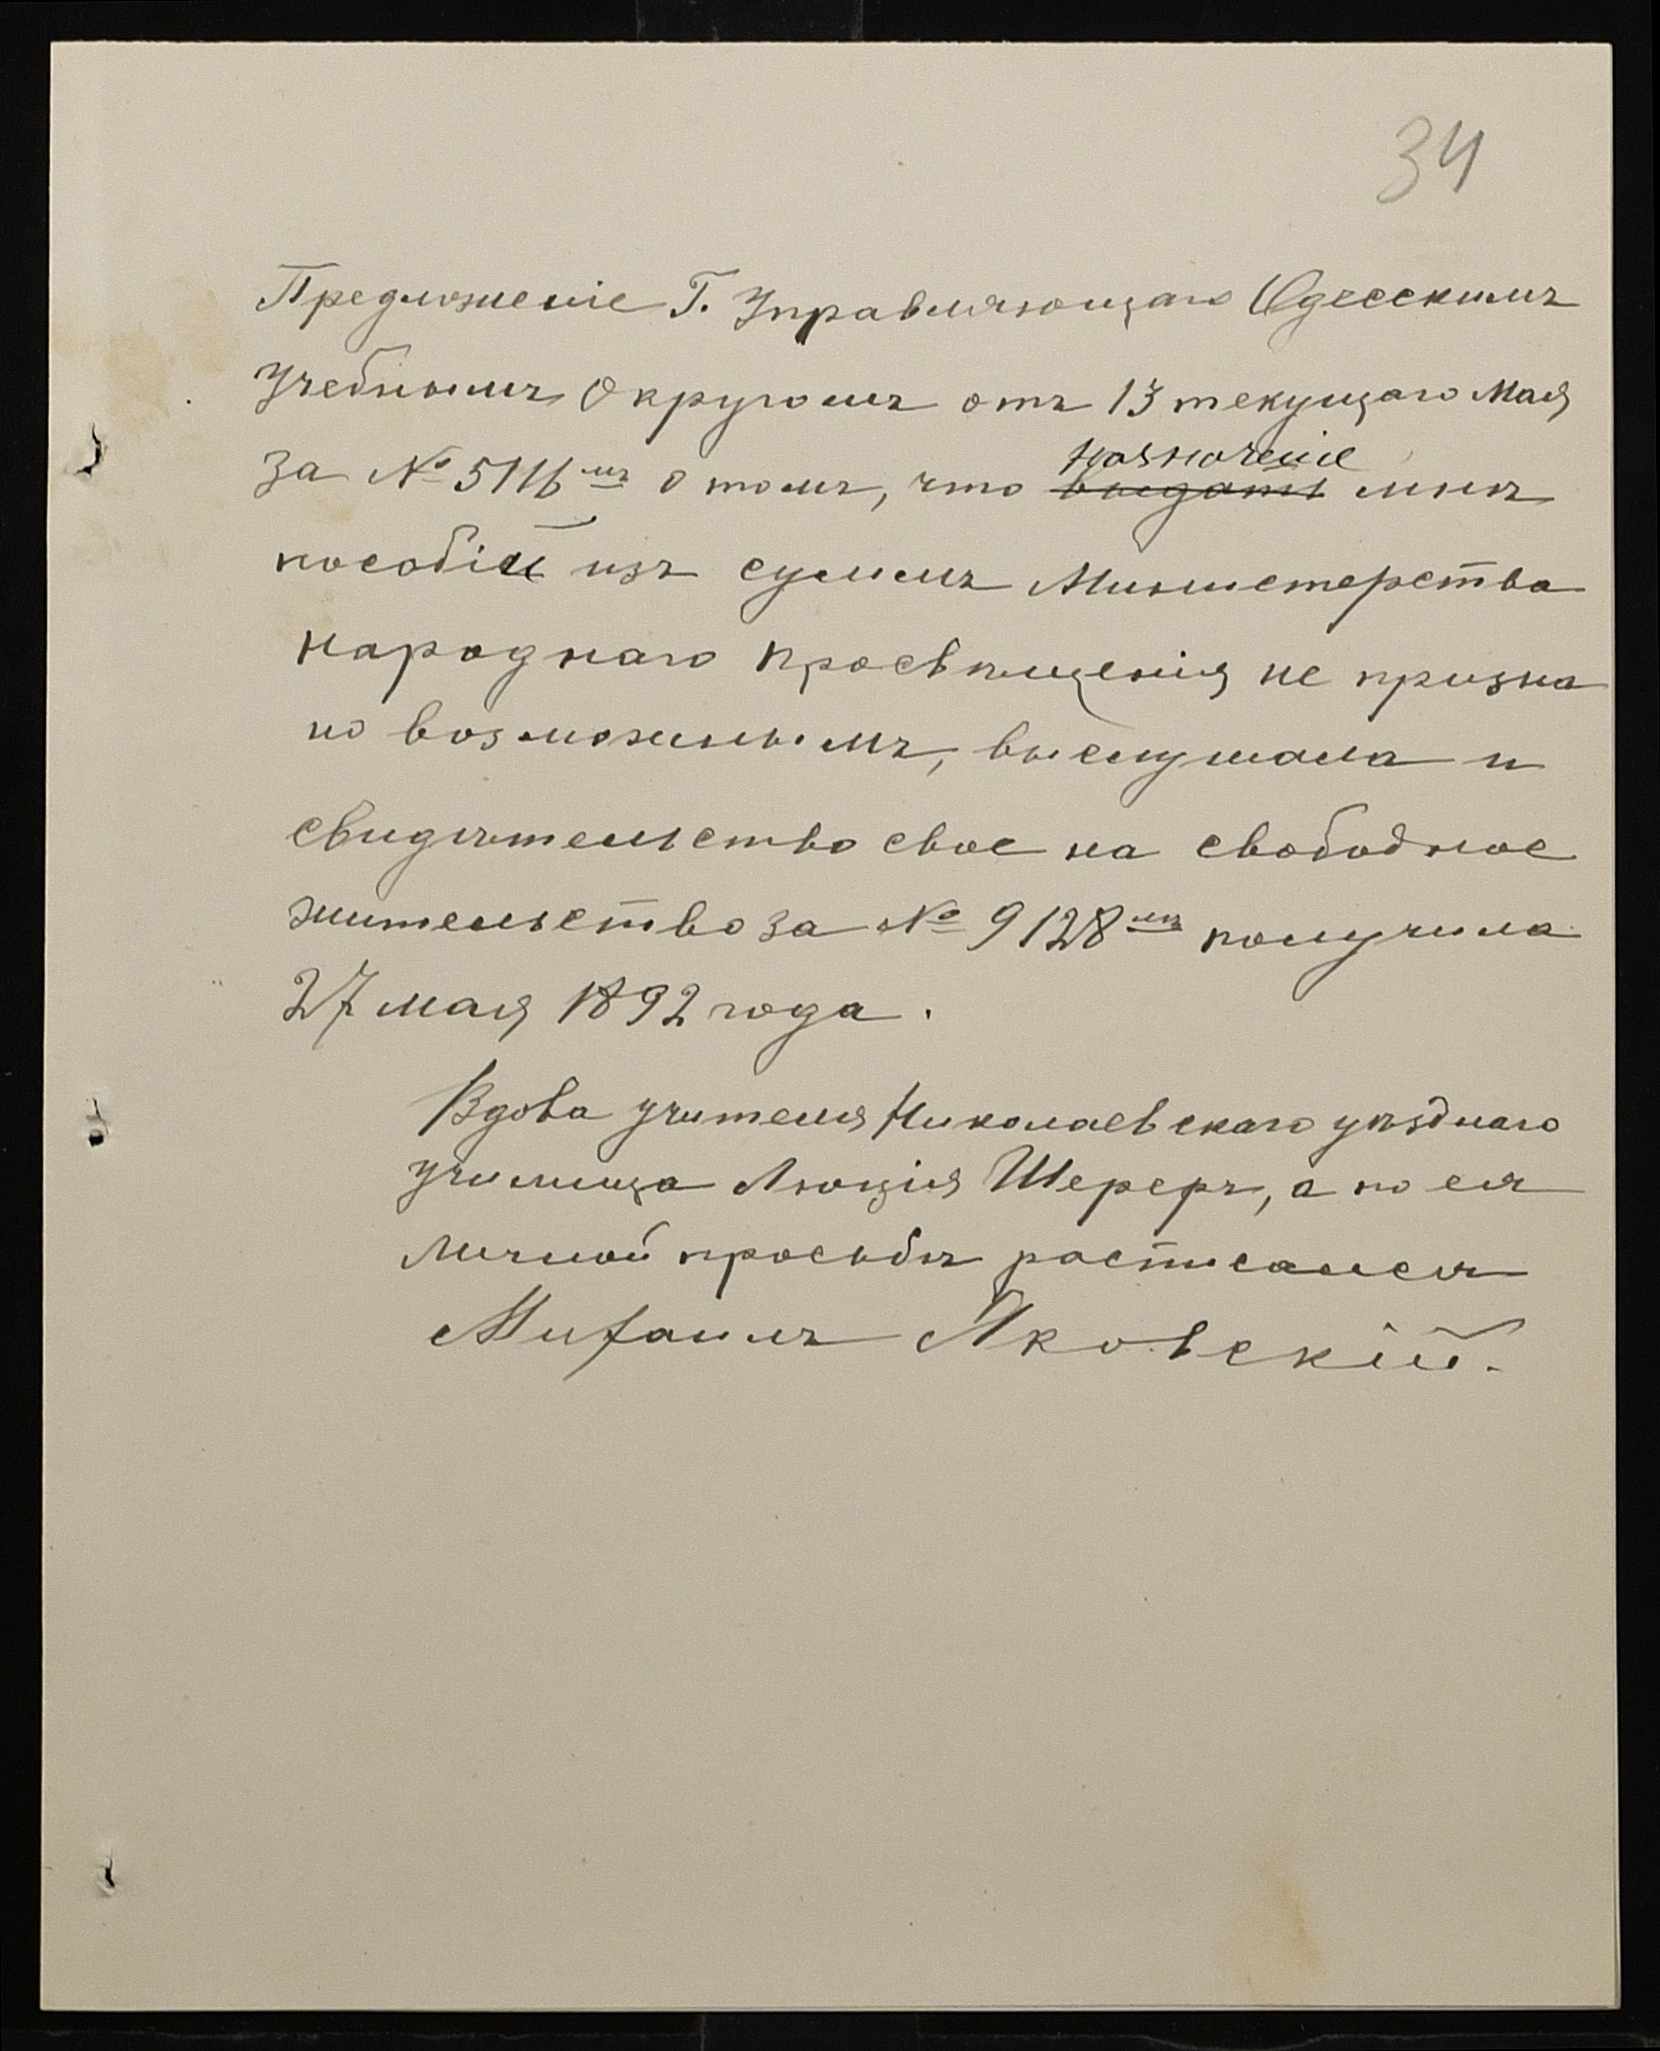 34
Предложеніе Г. Управляющаго Одесскимъ
Учебнымъ Округомъ отъ 13 текущаго Мая
за № 5116мъ о томъ, что выдать назначеніе мнѣ
пособій изъ суммъ Министерства
народнаго просвѣщенія не призна
но возможнымъ, выслушала и
свидѣтельство свое на свободное
жительство за № 9128мъ получила
27 мая 1892 года.
Вдова учителя Николаевскаго уѣзднаго
училища Люція Шереръ, а по ея
личной просьбѣ росписался
Михаилъ Яковскій.